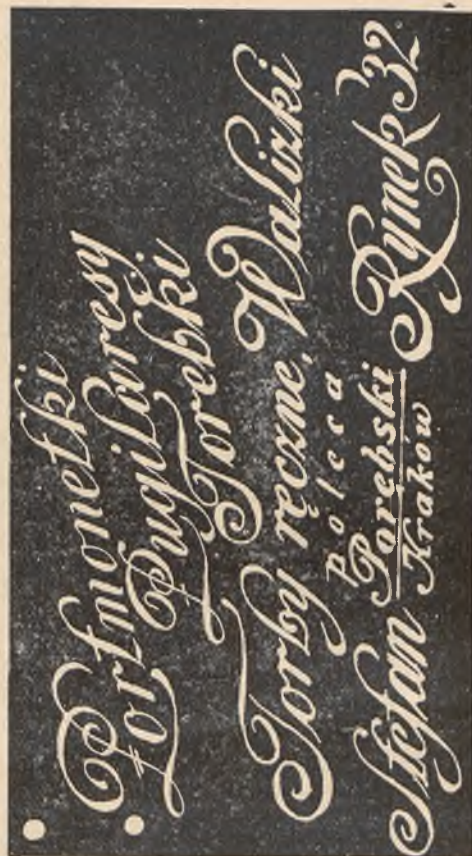 Portmonetki
Pugilaresy
Torebki
Torby ręczne, Walizki
poleca
Stefan Porębski Rynek 32.
Kraków